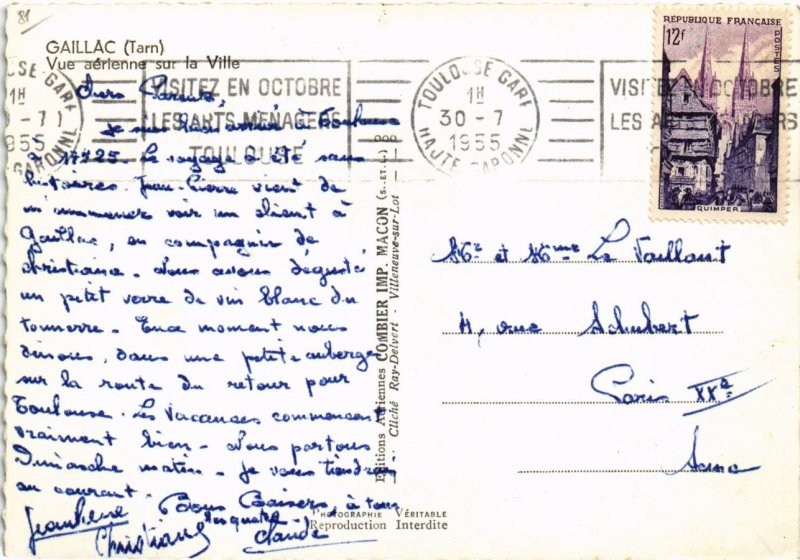 81
GAILLAC (Tarn)
Vue aérienne sur la Ville
Chers Parents,
Je suis bien arrivé à Toulouse
à 17h25. Le voyage a été sans
histoires. Jean-Pierre vient de
m'emmener voir un client à
Gaillac, en compagnie de
Christiane. Nous avons dégusté
un petit verre de vin blanc du
tonnerre. En ce moment nous
dînons, dans une petite auberge
sur la route du retour pour
Toulouse. Les vacances commencent
vraiment bien. Nous partons
Dimanche matin. Je vous tiendrai
au courant.
Bons Baisers, à tous
Jean Pierre
Christiane
Claude
Editions Aériennes COMBIER IMP. MACON (S.-ET-L.)
Cliché Ray-Delvert - Villeneuve-sur-Lot
PHOTOGRAPHIE VÉRITABLE
Reproduction Interdite
VISITEZ EN OCTOBRE
LES ARTS MENAGERS
TOULOUSE
TOULOUSE GARE
1H
30-7
1955
HAUTE-GARONNE
RÉPUBLIQUE FRANÇAISE
12F
POSTES
QUIMPER
Mr et Mme Le Vaillant
11, rue Schubert
Paris XXe
Seine